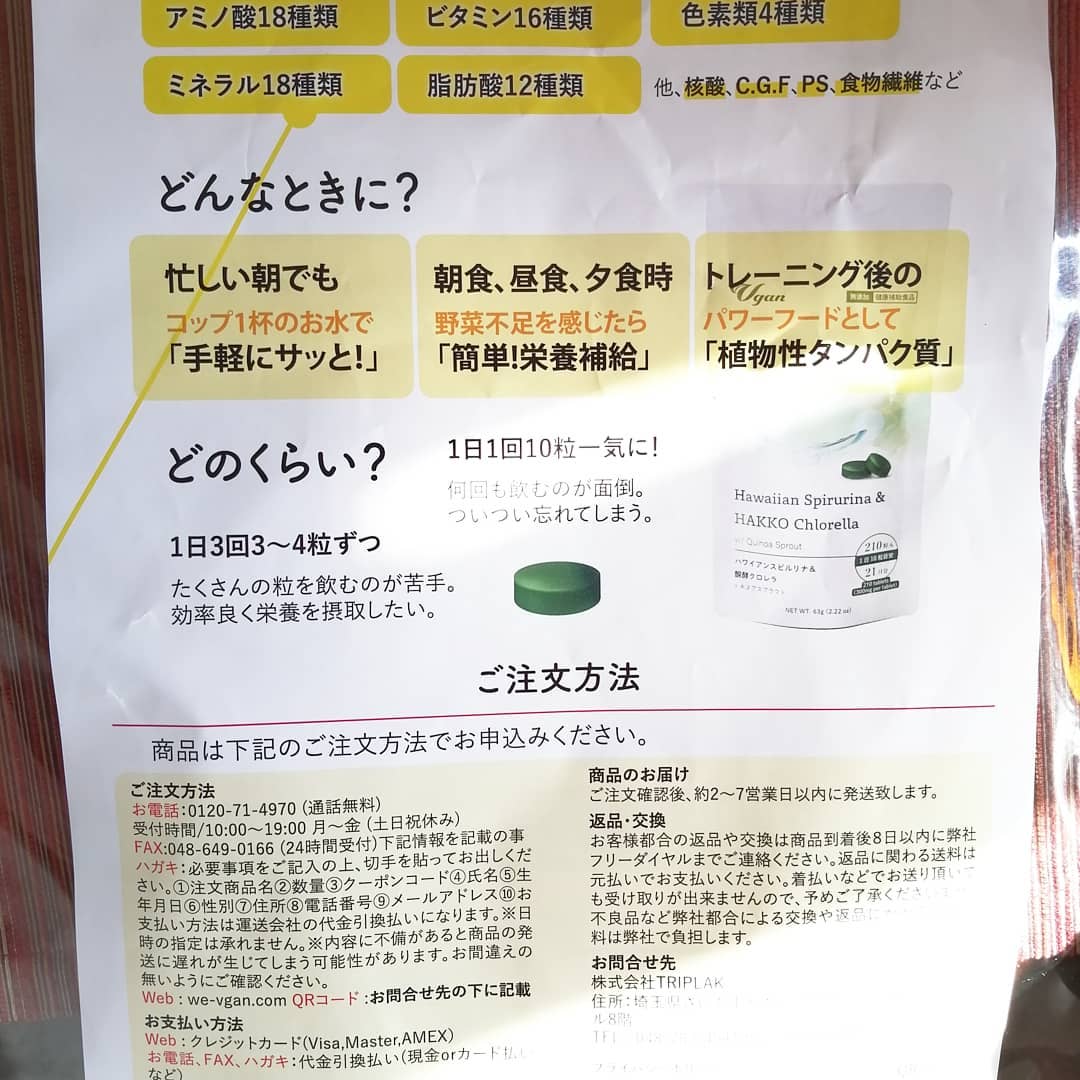 アミノ酸18種類
ビタミン16種類
色素類4種類
ミネラル18種類
脂肪酸12種類
他、核酸、C.G.F、PS、食物繊維など
どんなときに?
忙しい朝でも
コップ1杯のお水で
「手軽にサッと!」
朝食、昼食、夕食時
野菜不足を感じたら
「簡単!栄養補給」
トレーニング後の
パワーフードとして
「植物性タンパク質」
Vgan
無添加 健康補助食品
どのくらい?
1日1回10粒一気に!
何回も飲むのが面倒。
ついつい忘れてしまう。
1日3回3〜4粒ずつ
たくさんの粒を飲むのが苦手。
効率良く栄養を摂取したい。
Hawaiian Spirurina &
HAKKO Chlorella
w/ Quinoa Sprout
ハワイアンスピルリナ&
醗酵クロレラ
キヌアスプラウト
210粒入
21日分
210 tablets
(300mg per tablet)
NET WT. 63g (2.22 oz)
ご注文方法
商品は下記のご注文方法でお申込みください。
ご注文方法
お電話:0120-71-4970 (通話無料)
受付時間/10:00〜19:00 月〜金 (土日祝休み)
FAX:048-649-0166 (24時間受付)下記情報を記載の事
ハガキ:必要事項をご記入の上、切手を貼ってお出しくだ
さい。①注文商品名②数量③クーポンコード④氏名⑤生
年月日⑥性別⑦住所⑧電話番号⑨メールアドレス⑩お
支払い方法は運送会社の代金引換払いになります。※日
時の指定は承れません。※内容に不備があると商品の発
送に遅れが生じてしまう可能性があります。お間違えの
無いようにご確認ください。
Web : we-vgan.com QRコード :お問合せ先の下に記載
お支払い方法
Web : クレジットカード(Visa,Master,AMEX)
お電話、FAX、ハガキ:代金引換払い(現金orカード払い
など)
商品のお届け
ご注文確認後、約2〜7営業日以内に発送致します。
返品・交換
お客様都合の返品や交換は商品到着後8日以内に弊社
フリーダイヤルまでご連絡ください。返品に関わる送料は
元払いでお支払いください。着払いなどでお送り頂いて
も受け取りが出来ませんので、予めご了承ください
不良品など弊社都合による交換や返品に
料は弊社で負担します。
お問合せ先
株式会社TRIPLAK
住所:埼玉県
ル8階
TEL